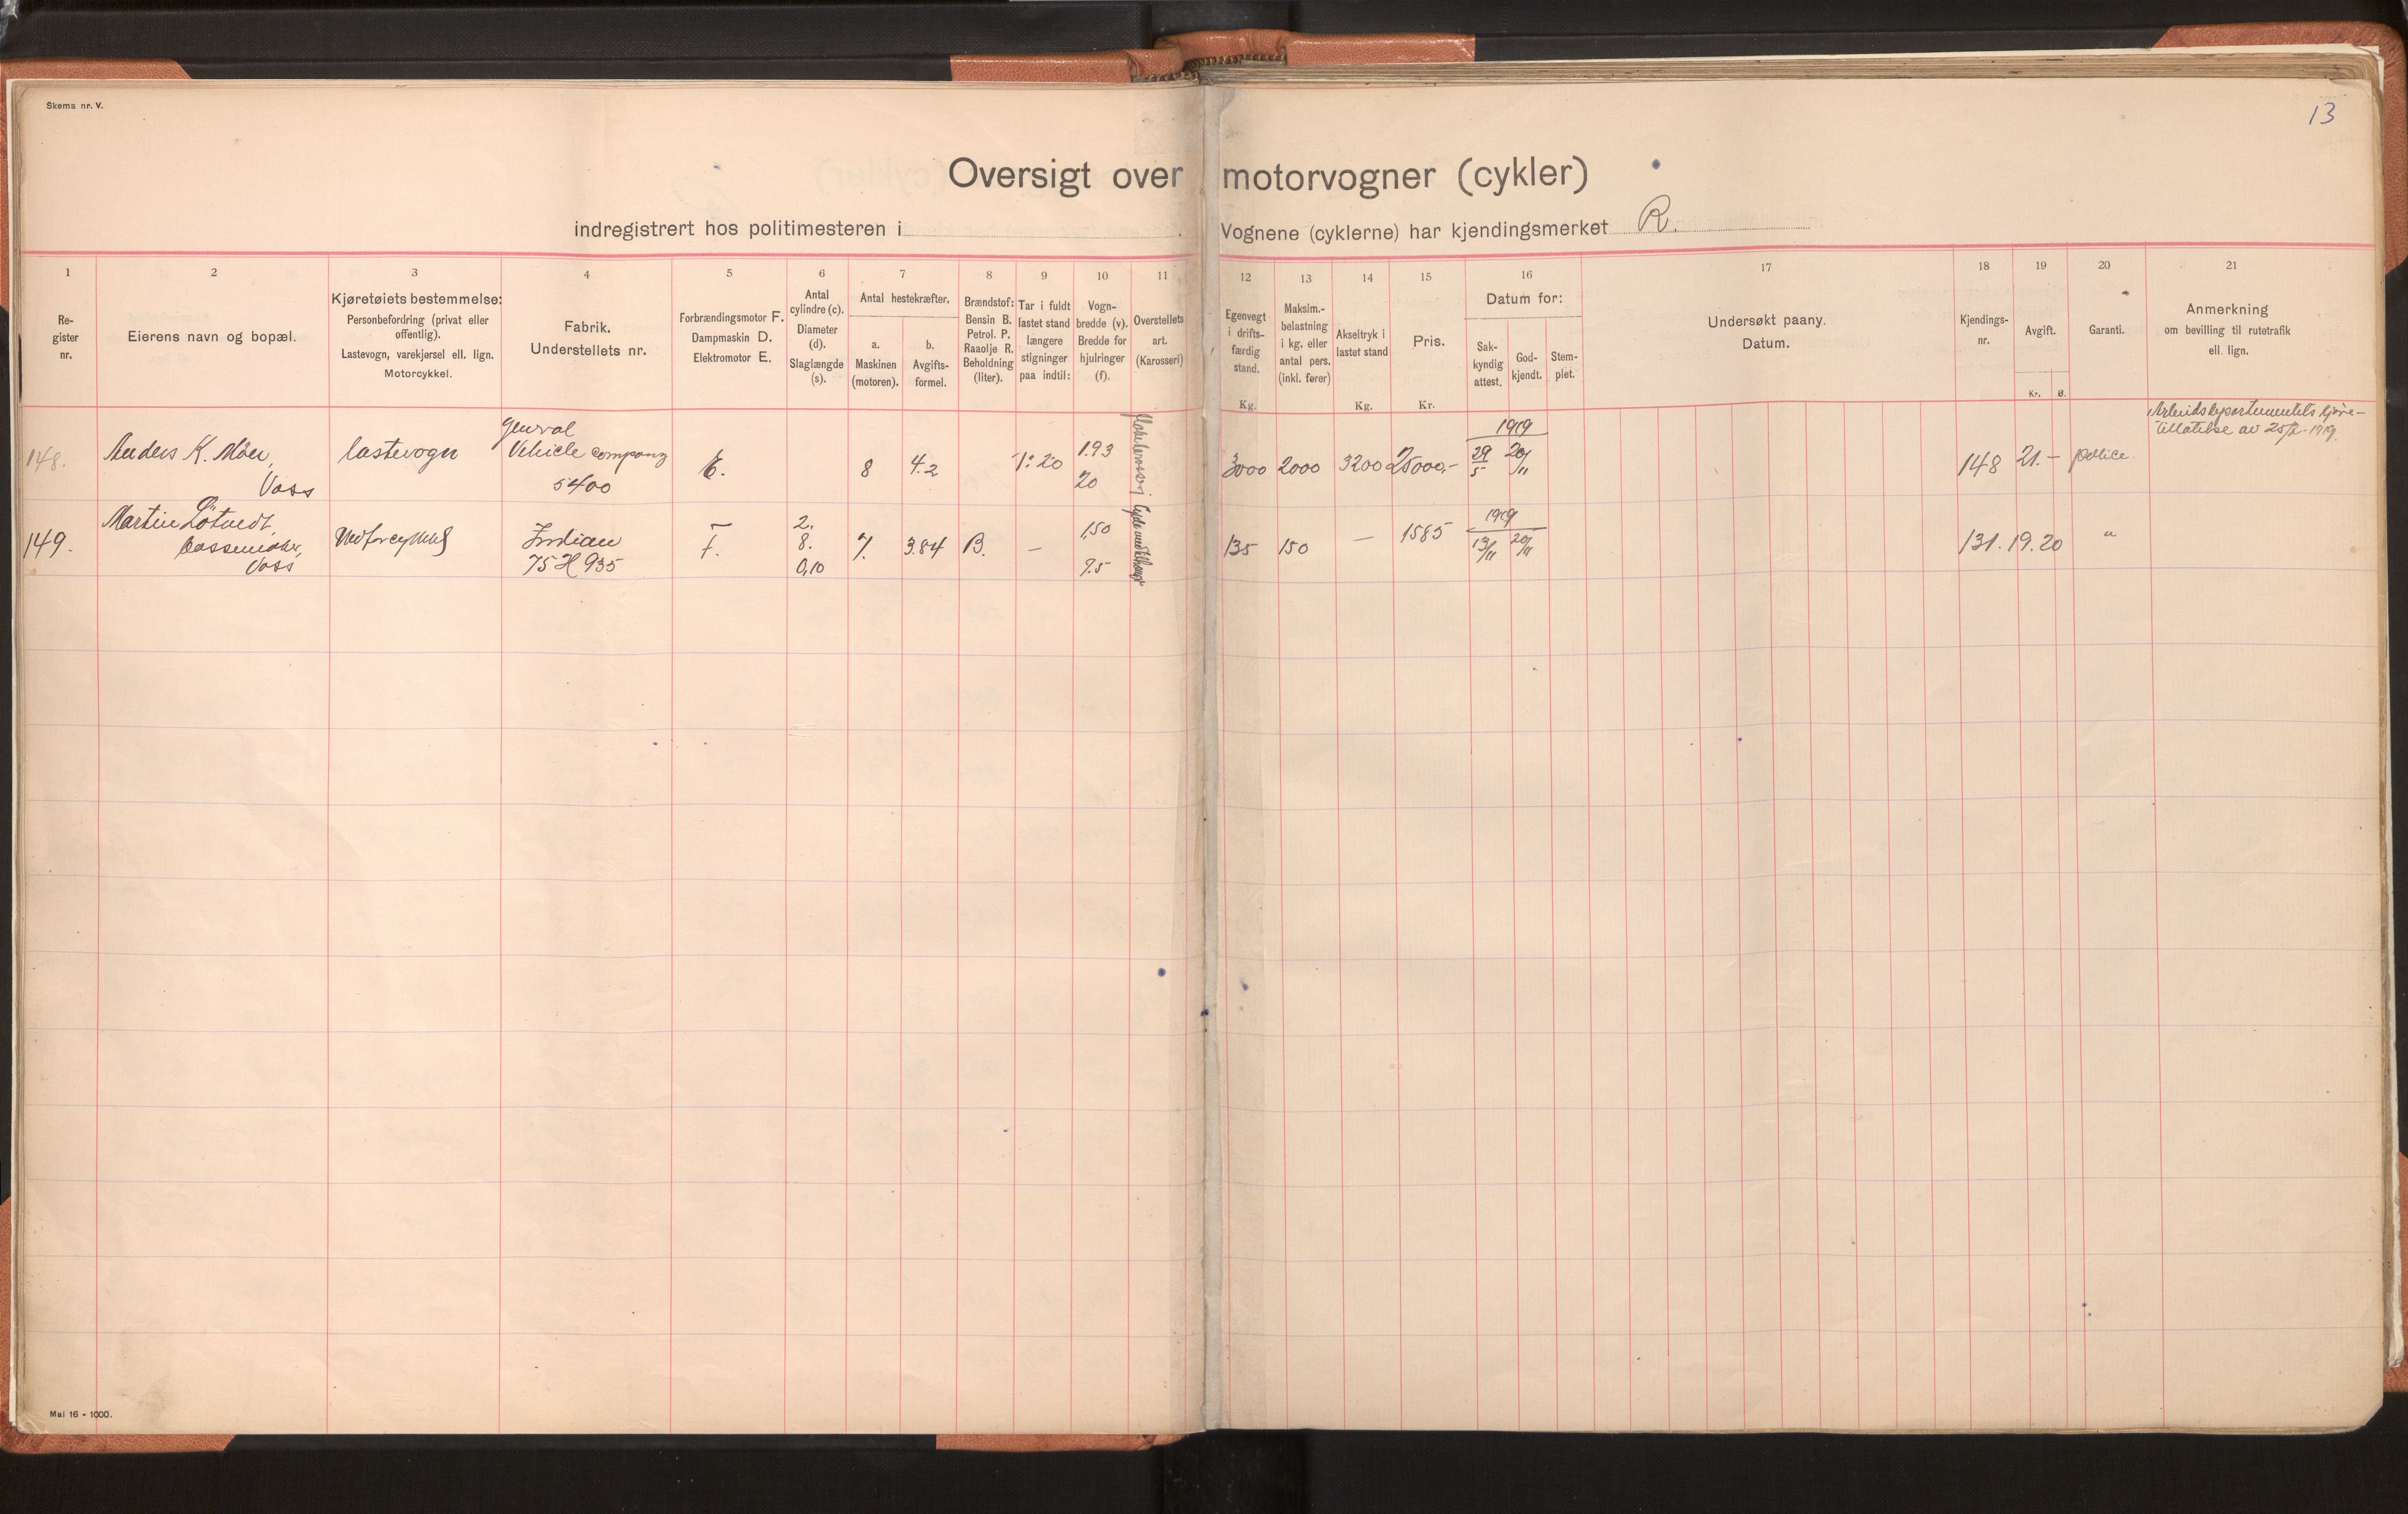 Skema nr. V.
13
Oversigt over motorvogner (cykler)
indregistrert hos politimesteren i
Vognene (cyklerne) har kjendingsmerket R.
1
Re-
gister
nr.
2
Eierens navn og bopæl.
3
Kjøretøiets bestemmelse:
Personbefordring (privat eller
offentlig).
Lastevogn, varekjørsel ell. lign.
Motorcykkel.
4
Fabrik.
Understellets nr.
5
Forbrændingsmotor F.
Dampmaskin D.
Elektromotor E.
6
Antal
cylindre (c).
Diameter
(d).
Slaglængde
(s).
7
Antal hestekræfter.
a.
Maskinen
(motoren).
b.
Avgifts-
formel.
8
Brændstof:
Bensin B.
Petrol. P.
Raaolje R.
Beholdning
(liter).
9
Tar i fuldt
lastet stand
længere
stigninger
paa indtil:
10
Vogn-
bredde (v).
Bredde for
hjulringer
(f).
11
Overstellets
art.
(Karosseri)
12
Egenvegt
i drifts-
færdig
stand.
Kg.
13
Maksim.-
belastning
i kg. eller
antal pers.
(inkl. fører)
14
Akseltryk i
lastet stand
Kg.
15
Pris.
Kr.
16
Datum for:
Sak-
kyndig
attest.
God-
kjendt.
Stem-
plet.
17
Undersøkt paany.
Datum.
18
Kjendings-
nr.
19
Avgift.
Kr. Ø.
20
Garanti.
21
Anmerkning
om bevilling til rutetrafik
ell. lign.
148.
Anders K. Møen,
Voss
lastevogn
General
Vehicle company
5400
E.
8
4.2
1:20
1.93
20
3000
2000
3200
25000,-
1919
29/5
20/11
148
21.-
police.
Arbeidsdepartementets kjøre-
tillatelse av 25/2-1919.
149.
Martin Løtvedt,
Vossevangen,
Voss
Motorcykkel
Indian
75 H 935
F.
2.
8.
0,10
7.
3.84
B.
—
1,50
7.5
135
150
—
1585
1919
13/11
20/11
131.
19.20
"
Mai 16 - 1000.